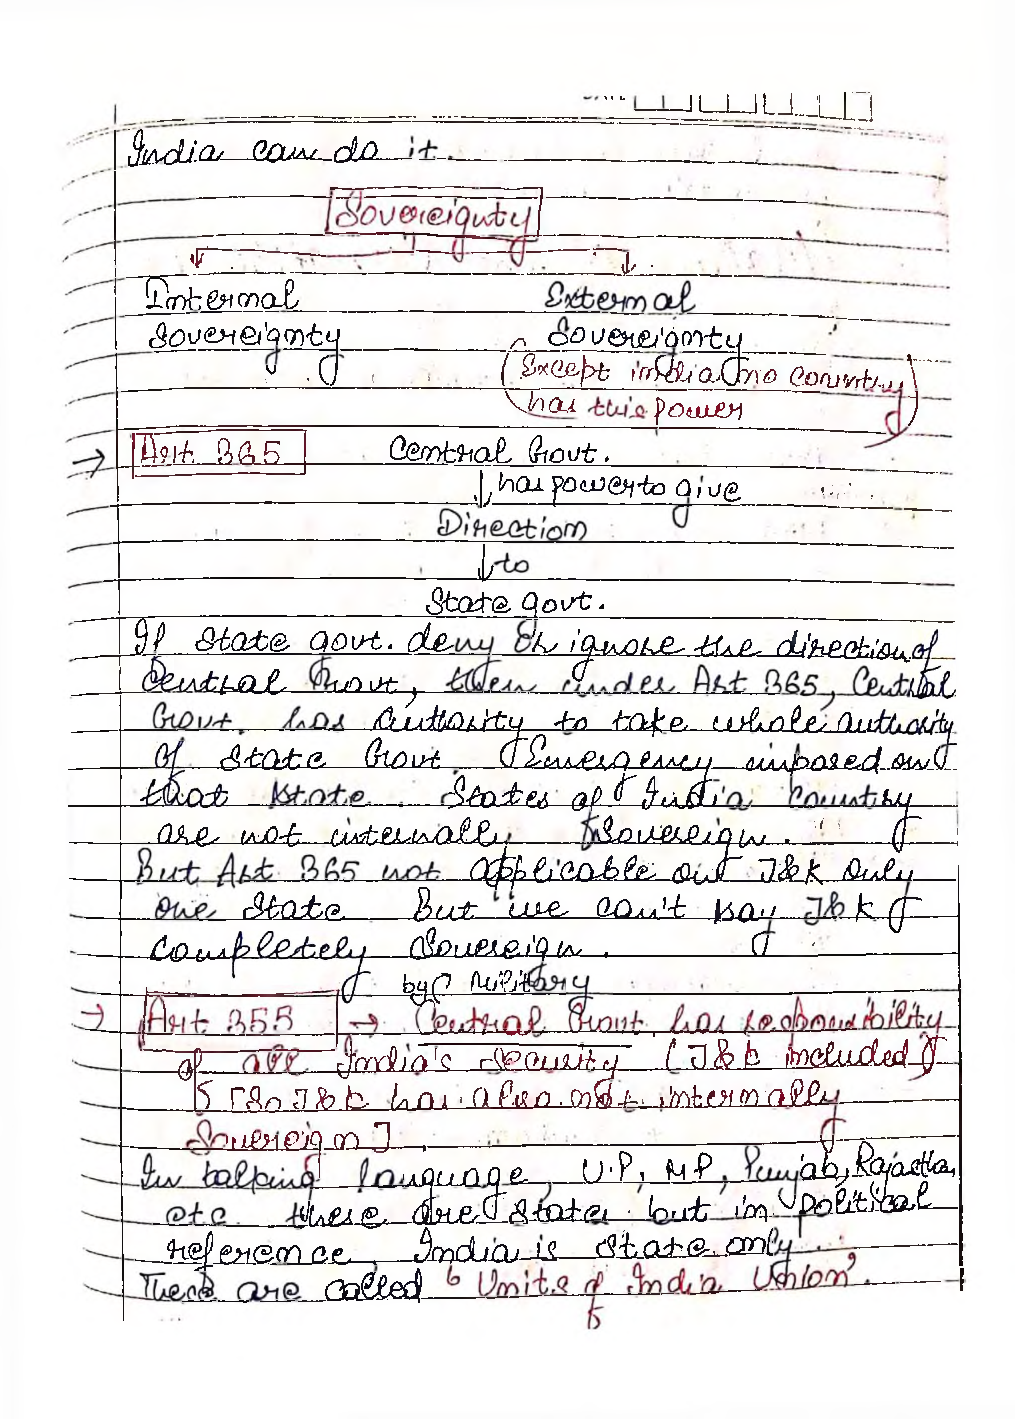 DATE
India can do it.
Sovereignty
Internal External
Sovereignty Sovereignty
(Except india no country
has this power)
→ Art. 365 Central Govt.
↓ has power to give
Direction
↓ to
State govt.
If State govt. deny Or ignore the direction of
Central Govt, then under Art 365, Central
Govt. has authority to take whole authority
Of State Govt. Emergency imposed on
that state. States of India Country
are not internally Sovereign.
But Art 365 not applicable on J&K Only
one State But we can't say J&K
completely Sovereign.
by military
→ Art 355 → Central Govt. has responsibility
of all India's Security (J&K included)
[So J&K has also not internally
Sovereign].
In talking language, U.P, MP, Punjab, Rajastha,
etc. these are States but in political
reference, India is State only.
These are called 'Units of India Union'.